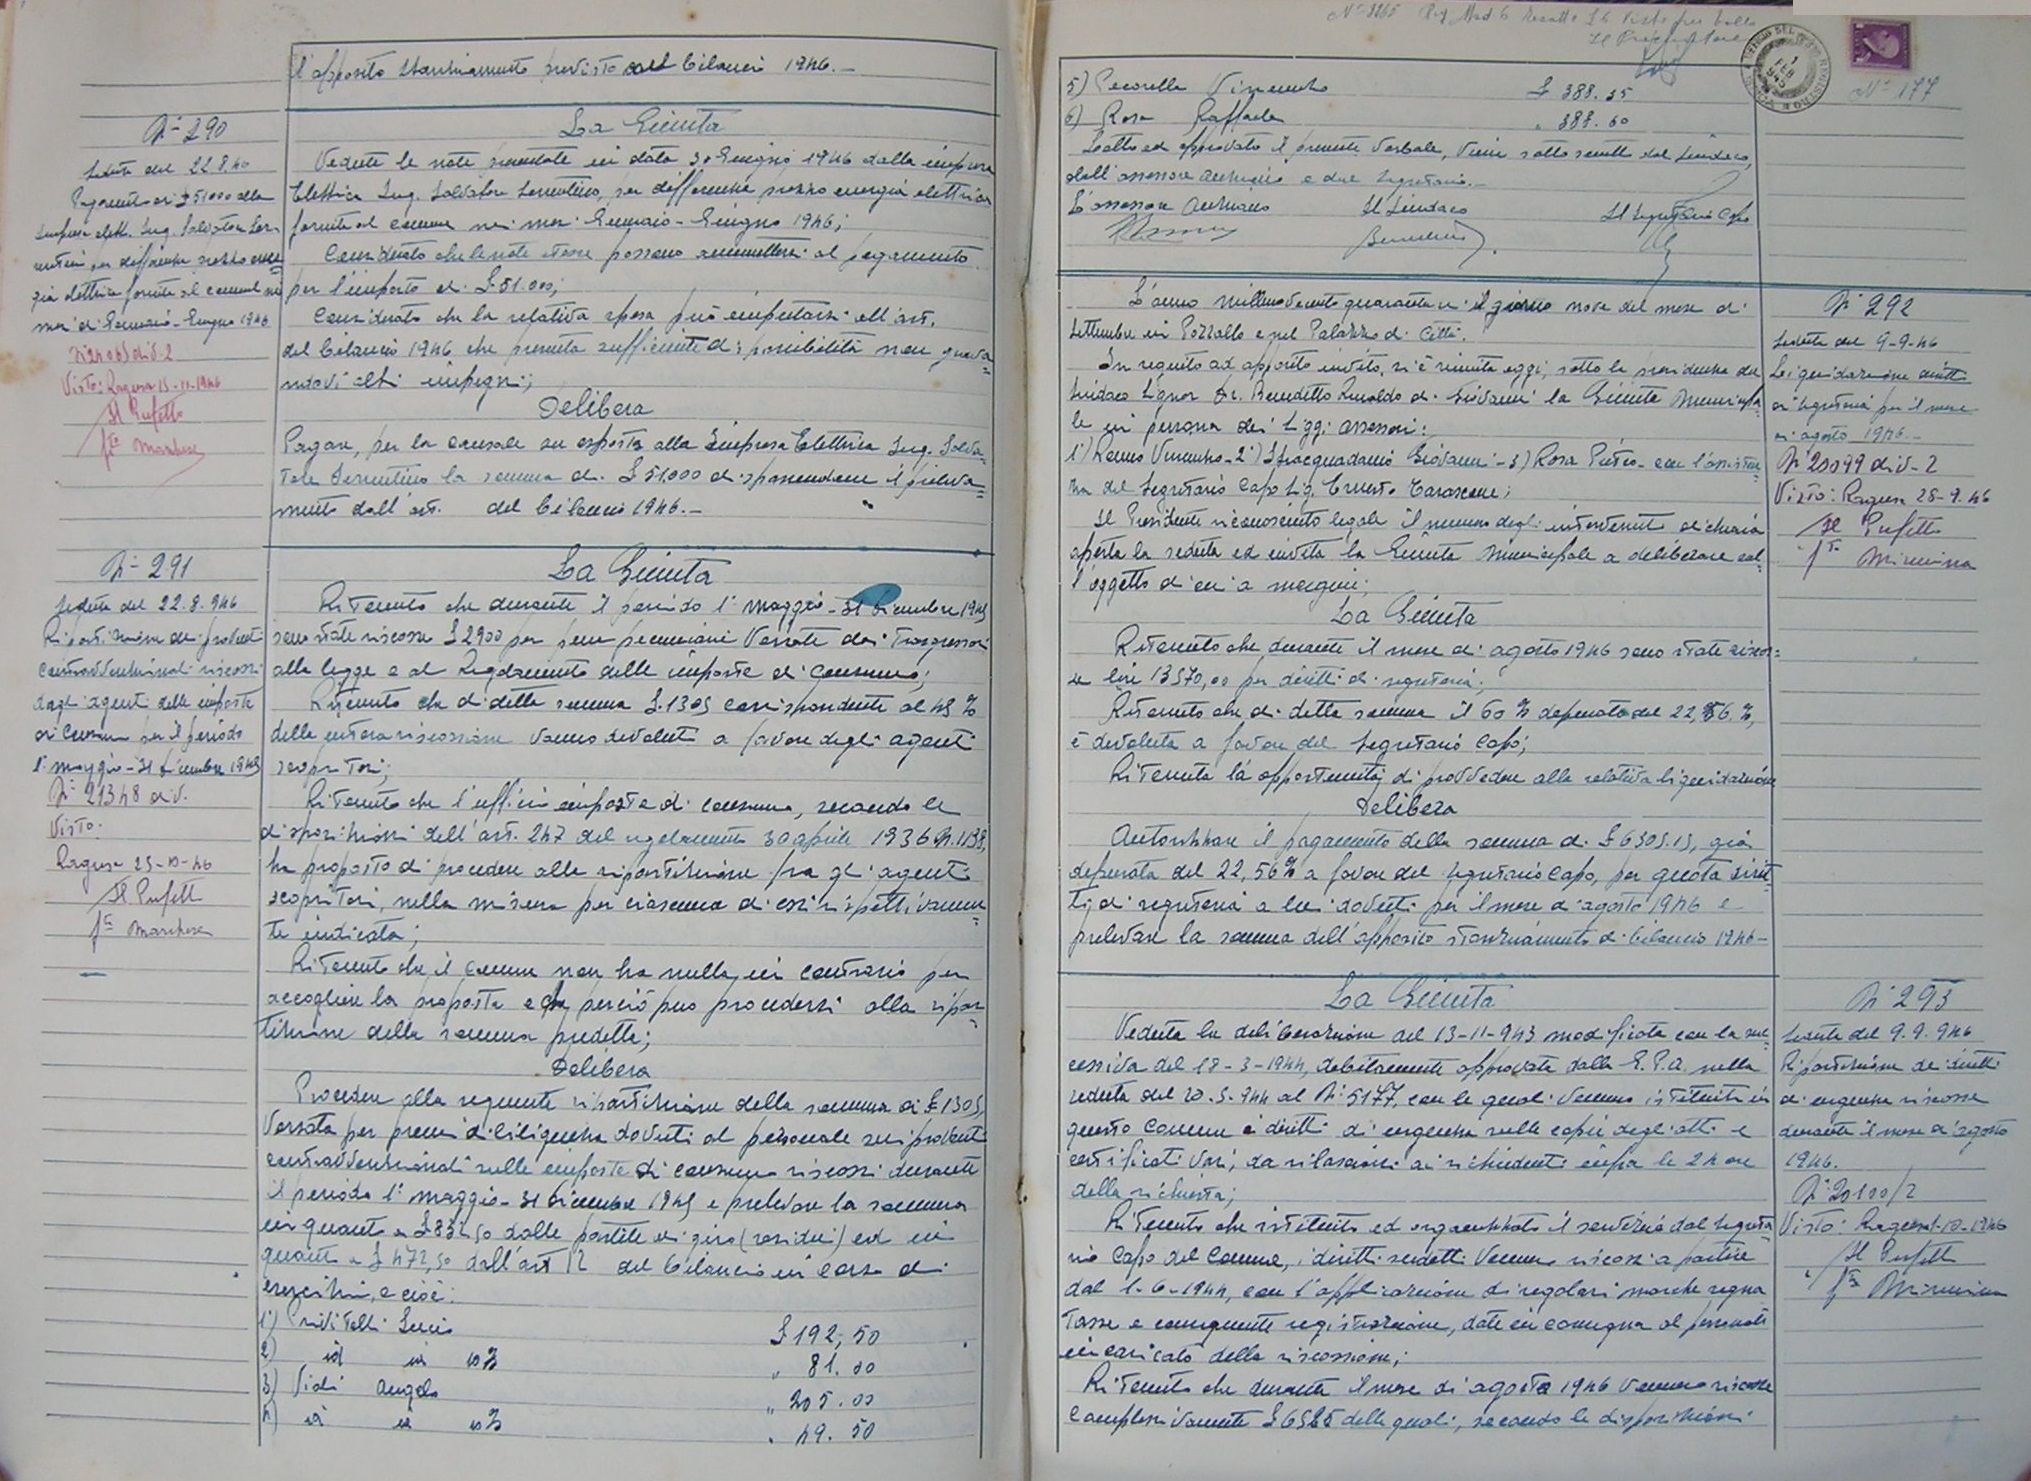 l'apposito stanziamento previsto nel bilancio 1946.-
N° 290
Seduta del 22.8.40
Pagamento di £ 51000 alla
Impresa elett. Ing. Salvatore Sor-
rentino per differenza prezzo ener-
gia elettrica fornita al comune nei
mesi di Gennaio-Giugno 1946
div. 2
Visto: Ragusa 15-11-1946
Il Prefetto
fto Marchese
La Giunta
Vedute le note presentate in data 30 Giugno 1946 dalla impresa
Elettrica Ing. Salvatore Sorrentino, per differenza prezzo energia elettrica
fornita al comune nei mesi Gennaio-Giugno 1946;
Considerato che le note stesse possono ammettersi al pagamento
per l'importo di £ 51.000;
Considerato che la relativa spesa può imputarsi all'art.
del bilancio 1946 che presenta sufficiente disponibilità non grava=
ndovi altri impegni;
Delibera
Pagare, per la causale su esposta alla Impresa Elettrica Ing. Salva=
tore Sorrentino la somma di £ 51.000 disponendone il preleva=
mento dall'art. del bilancio 1946.-
N° 291
Seduta del 22.8.946
Ripartizione dei proventi
contravvenzionali riscossi
dagli agenti delle imposte
di consumo per il periodo
1° maggio-31 dicembre 1945
N° 21348 div.
Visto:
Ragusa 25-10-46
Il Prefetto
fto Marchese
La Giunta
Ritenuto che durante il periodo 1° maggio-31 dicembre 1945
sono state riscosse £ 2900 per pene pecuniarie versate dai trasgressori
alla legge e al Regolamento delle imposte di consumo;
Ritenuto che di detta somma £ 1305 corrispondente al 45%
della intera riscossione vanno devoluti a favore degli agenti
scopritori;
Ritenuto che l'ufficio imposte di consumo, secondo le
disposizioni dell'art. 247 del regolamento 30 aprile 1936 N. 1138,
ha proposto di procedere alla ripartizione fra gli agenti
scopritori, nella misura per ciascuno di essi rispettivamen=
te indicata;
Ritenuto che il comune non ha nulla in contrario per
accogliere la proposta e che perciò può procedersi alla ripar=
tizione della somma predetta;
Delibera
Procedere alla seguente ripartizione della somma di £ 1305,
versata per premi diligenza dovuti al personale sui proventi
contravvenzionali sulle imposte di consumo riscossi durante
il periodo 1° maggio-31 dicembre 1945 e prelevare la somma
in quanto a £ 832,50 dalle partite di giro (residui) ed in
quanto a £ 472,50 dall'art 12 del bilancio in corso di
esercizio, e cioè:
1) Lucio £ 192,50
2) id id 10% " 81.00
3) Vidi Angelo " 205.00
4) id id 10% " 49.50
5) Pecorella Vincenzo £ 388.35
6) Rosa Raffaele " 388.60
Letto ed approvato il presente verbale, viene sottoscritto dal Sindaco,
dall'assessore anziano e dal Segretario.-
L'assessore Anziano Il Sindaco Il Segretario Capo
N° 177
L'anno millenovecentoquarantasei il giorno nove del mese di
Settembre in Pozzallo e nel Palazzo di Città.
In seguito ad apposito invito, si è riunita oggi, sotto la presidenza del
Sindaco Signor Dr. Benedetto Rinaldo di Giovanni la Giunta Municipa=
le in persona dei Sigg. assessori:
1°) Vincenzo-2°) Giovanni-3) Rosa Pietro-con l'assisten=
za del Segretario Capo Sig. Ernesto Tarascone;
Il Presidente riconosciuto legale il numero degli intervenuti dichiara
aperta la seduta ed invita la Giunta Municipale a deliberare sul=
l'oggetto di cui a margine;
La Giunta
Ritenuto che durante il mese di agosto 1946 sono state riscos=
se lire 13570,00 per diritti di segreteria;
Ritenuto che di detta somma il 60% depurato del 22,56%,
è devoluta a favore del Segretario Capo;
Ritenuta la opportunità di provvedere alla relativa liquidazione
Delibera
Autorizzare il pagamento della somma di £ 6305.15, già
depurata del 22,56% a favore del Segretario Capo, per quota dirit=
ti di segreteria a lui dovuti per il mese di agosto 1946 e
prelevare la somma dall'apposito stanziamento di bilancio 1946-
N° 292
Seduta del 9-9-46
Liquidazione diritti
di segreteria per il mese
di agosto 1946.-
N° 20099 div-2
Visto: Ragusa 28-9-46
Il Prefetto
fto
La Giunta
Veduta la deliberazione del 13-11-943 modificata con la suc=
cessiva del 18-3-1944, debitamente approvate dalla G.P.A. nella
seduta del 20.5.944 al N° 5177, con le quali vennero istituiti in
questo comune i diritti di urgenza sulle copie degli atti e
certificati vari, da rilasciarsi ai richiedenti entro le 24 ore
della richiesta;
Ritenuto che istituito ed organizzato il servizio dal Segreta=
rio Capo del Comune, i diritti suddetti vennero riscossi a partire
dal 1-6-1944, con l'applicazione di regolari marche segna
tasse e conseguente registrazione, date in consegna al personale
incaricato della riscossione;
Ritenuto che durante il mese di agosto 1946 vennero riscosse
complessivamente £ 6525 delle quali, secondo le disposizioni
N° 293
Seduta del 9.9.946
Ripartizione dei diritti
di urgenza riscossi
durante il mese di agosto
1946.
N° 20100/2
Visto: Ragusa 1-10-1946
Il Prefetto
fto